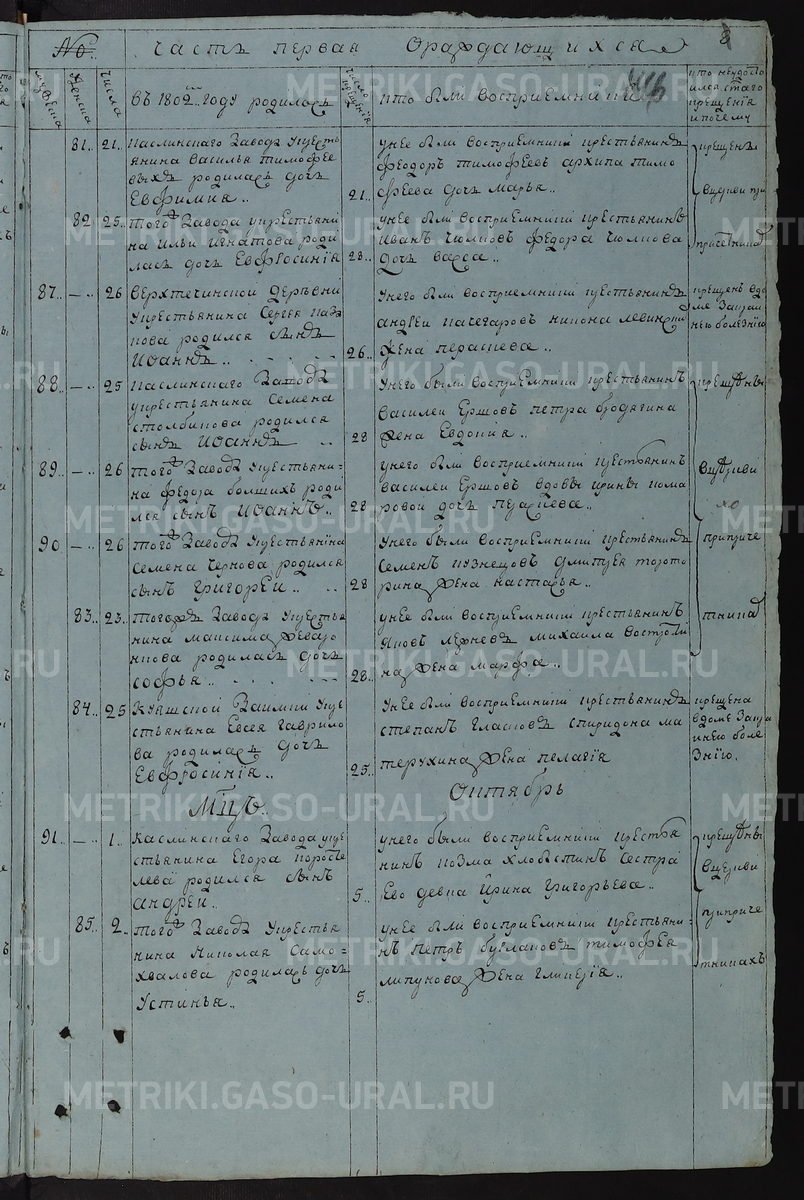 №
часть первая о раждающихся
мужеска
женска
числа
въ 1802м году родились
число крещения
кто были восприемники
кто неудосто
ился стаго
крещения
и почему
81.. 21.. каслинскаго завода укресть
янина василья тимофее
выхъ родилась дочь
Евфимия..
21..
унее были восприемники крестьянинъ
феодоръ тимофеевъ архипа тимо
феева дочь марья..
крещены
82 25.. тогожъ завода укрестьяни
на ильи игнатова роди
лась дочь Евфросиния
28..
унее были восприемники крестьянинъ
иванъ федора
дочь васса..
вцеркви при
причетникахъ
87.. — .. 26 верхтечинской деревни
укрестьянина Сергея
родился сынъ
Иоаннъ..
26..
унего были восприемники крестьянинъ
андреи никона
жена
крещенъ вдо
ме
нею болезнию
88.. — .. 25 каслинскаго завода
укрестьянина Семена
столбикова родился
сынъ Иоаннъ ..
28
унего были восприемники крестьянинъ
василеи Ершовъ петра бродягина
жена Евдокия..
крещены
89.. — .. 26 тогожъ завода укрестьяни-
на федора болшихъ роди
лся сынъ Иоаннъ..
28
унего были восприемники крестьянинъ
василеи Ершовъ вдовы ирины кома
ровой дочь
вцеркви
90 — .. 26 тогожъ завода укрестьянина
семена чернова родился
сынъ григореи..
28
унего были восприемники крестьянинъ
семенъ кузнецовъ дмитрея
жена настасья..
приприче
83.. 23.. тогожъ завода укрестья
нина максима
родилась дочь
софья..
28..
унее были восприемники крестьянинъ
яковъ михаила
жена марфа..
тникахъ
84.. 25 Куяшской заимки укре
стьянина Евсея гаврило
ва родилась дочь
Евфросиния..
25..
унее были восприемники крестьянинъ
степанъ спиридона ма
терухина жена пелагия
крещена
вдоме
нею боле
знию.
Мцъ.. Октябрь
91.. — .. 1.. каслинскаго завода укре
стьянина Егора коросте
лева родился сынъ
андреи..
5..
унего были восприемники крестья
нинъ козма хлобыстинъ Сестра
Ево девка ирина григорьева..
крещены
вцеркви
85.. 2.. тогожъ завода укрестья
нина николая само-
хвалова родилась дочь
устинья..
5..
унее были восприемники крестьяни-
нъ петръ буслановъ тимофея
липунова жена гликерия..
приприче
тникахъ
METRIKI.GASO-URAL.RU